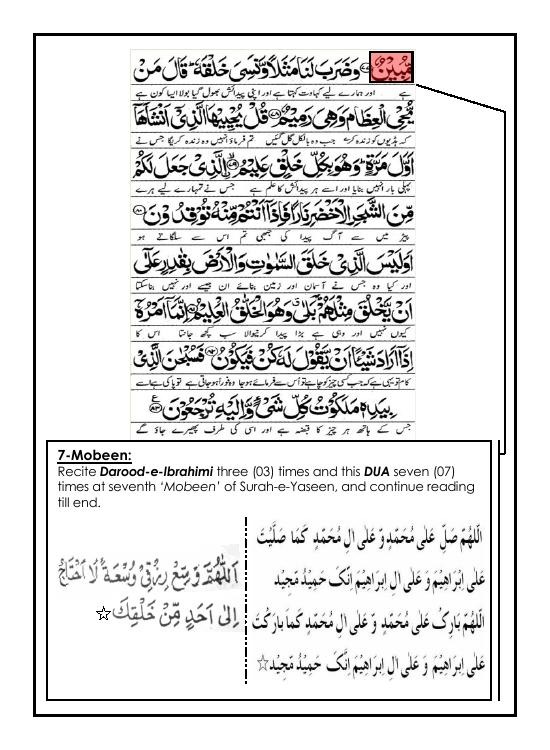 مُّبِيْنٌ ﴿۷۷﴾ وَضَرَبَ لَنَا مَثَلًا وَّنَسِیَ خَلْقَهٗ ؕ قَالَ مَنْ
ہے اور ہمارے لیے کہاوت کہتا ہے اور اپنی پیدائش بھول گیا بولا ایسا کون ہے
یُّحْیِ الْعِظَامَ وَهِیَ رَمِیْمٌ ﴿۷۸﴾ قُلْ یُحْیِیْهَا الَّذِیْۤ اَنْشَاَهَاۤ
کہ ہڈیوں کو زندہ کرے جب وہ بالکل گل گئیں تم فرماؤ انہیں وہ زندہ کریگا جس نے
اَوَّلَ مَرَّةٍ ؕ وَهُوَ بِكُلِّ خَلْقٍ عَلِیْمُ ﴿۷۹﴾ الَّذِیْ جَعَلَ لَكُمْ
پہلی بار انہیں بنایا اور اسے ہر پیدائش کا علم ہے جس نے تمہارے لیے ہرے
مِّنَ الشَّجَرِ الْاَخْضَرِ نَارًا فَاِذَاۤ اَنْتُمْ مِّنْهُ تُوْقِدُوْنَ ﴿۸۰﴾
پیڑ میں سے آگ پیدا کی جبھی تم اس سے سلگاتے ہو
اَوَلَیْسَ الَّذِیْ خَلَقَ السَّمٰوٰتِ وَالْاَرْضَ بِقٰدِرٍ عَلٰۤی
اور کیا وہ جس نے آسمان اور زمین بنائے ان جیسے اور نہیں بنا سکتا
اَنْ یَّخْلُقَ مِثْلَهُمْ ؕ بَلٰی ۗ وَهُوَ الْخَلّٰقُ الْعَلِیْمُ ﴿۸۱﴾ اِنَّمَاۤ اَمْرُهٗۤ
کیوں نہیں اور وہی ہے بڑا پیدا کرنیوالا سب کچھ جانتا اس کا
اِذَاۤ اَرَادَ شَیْـًٔا اَنْ یَّقُوْلَ لَهٗ كُنْ فَیَكُوْنُ ﴿۸۲﴾ فَسُبْحٰنَ الَّذِیْ
کام تو یہی ہے کہ جب کسی چیز کو چاہے تو اس سے فرمائے ہو جا وہ فوراً ہو جاتی ہے تو پاکی ہے اسے
بِیَدِهٖ مَلَكُوْتُ كُلِّ شَیْءٍ وَّاِلَیْهِ تُرْجَعُوْنَ ﴿۸۳﴾
جس کے ہاتھ ہر چیز کا قبضہ ہے اور اسی کی طرف پھیرے جاؤ گے
7-Mobeen:
Recite Darood-e-Ibrahimi three (03) times and this DUA seven (07)
times at seventh ‘Mobeen’ of Surah-e-Yaseen, and continue reading
till end.
اَللّٰهُمَّ صَلِّ عَلٰی مُحَمَّدٍ وَّ عَلٰی اٰلِ مُحَمَّدٍ كَمَا صَلَّیْتَ
عَلٰی اِبْرَاهِیْمَ وَ عَلٰی اٰلِ اِبْرَاهِیْمَ اِنَّكَ حَمِیْدٌ مَّجِیْد
اَللّٰهُمَّ بَارِكْ عَلٰی مُحَمَّدٍ وَّ عَلٰی اٰلِ مُحَمَّدٍ كَمَا بَارَكْتَ
عَلٰی اِبْرَاهِیْمَ وَ عَلٰی اٰلِ اِبْرَاهِیْمَ اِنَّكَ حَمِیْدٌ مَّجِیْد☆
اَللّٰهُمَّ وَسِّعْ رِزْقِیْ وُسْعَةً لَا اَحْتَاجُ
اِلٰی اَحَدٍ مِّنْ خَلْقِكَ ☆